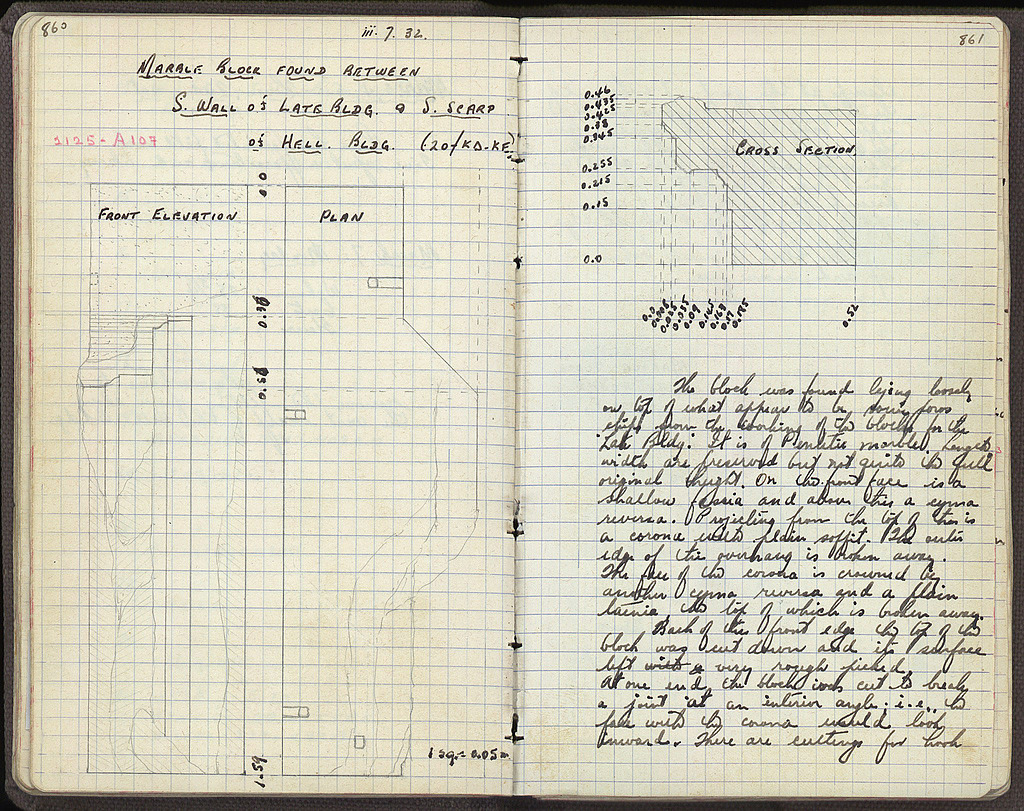 860
iii. 7. 32.
MARBLE BLOCK FOUND BETWEEN
S. WALL of LATE BLDG. & S. SCARP
of HELL. BLDG. (20/KD-KE)
2125-A107
FRONT ELEVATION
PLAN
0.0
0.5
1.59
1 sq.= 0.05m
861
0.46
0.435
0.425
0.38
0.345
0.255
0.215
0.15
0.0
CROSS SECTION
0.0
0.025
0.035
0.09
0.145
0.163
0.17
0.185
0.52
The block was found lying loosely
on top of what appear to be poros
chips from the working of the blocks for the
Late Bldg. It is of Pentelic marble. Length
width are preserved but not quite the full
original height. On the front face is a
shallow fascia and above this a cyma
reversa. Projecting from the top of this is
a corona with plain soffit. The outer
edge of the overhang is broken away.
The face of the corona is crowned by
another cyma reversa and a plain
taenia, the top of which is broken away.
Back of this front edge the top of the
block was cut down and its surface
left very rough picked.
At one end, the block was cut to break
a joint at an interior angle; i.e., the
face with the corona would look
inward. There are cuttings for hook